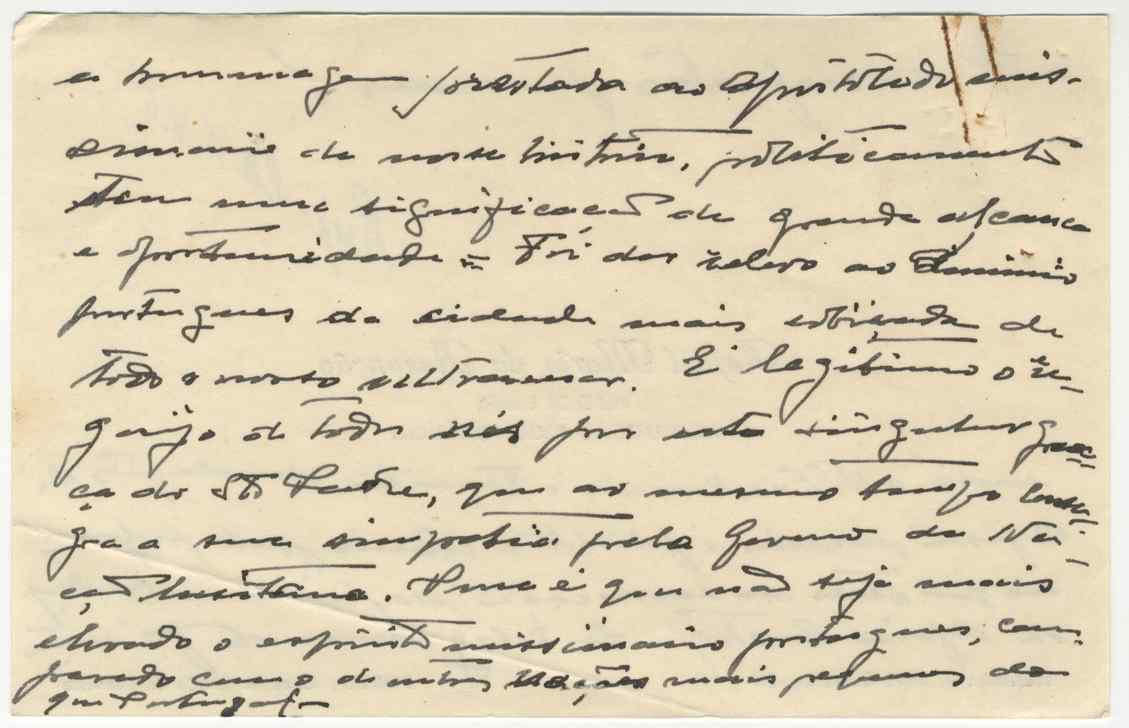 a homenagem prestada ao Apostolado mis-
sionario da nossa historia, politicamente
tem uma significação de grande alcance
e oportunidade = Foi dar relevo ao Dominio
portugues da cidade mais cobiçada de
todo o nosso ultramar. É legitimo o re-
gosijo de todos nós por esta singular gra-
ça do Sto Padre, que ao mesmo tempo consa-
gra a sua simpatia pelo Governo da Na-
ção Lusitana. Pena é que não seja mais
elevado o espirito missionario portugues, com-
parado com o de outras nações mais pequenas do
que Portugal.